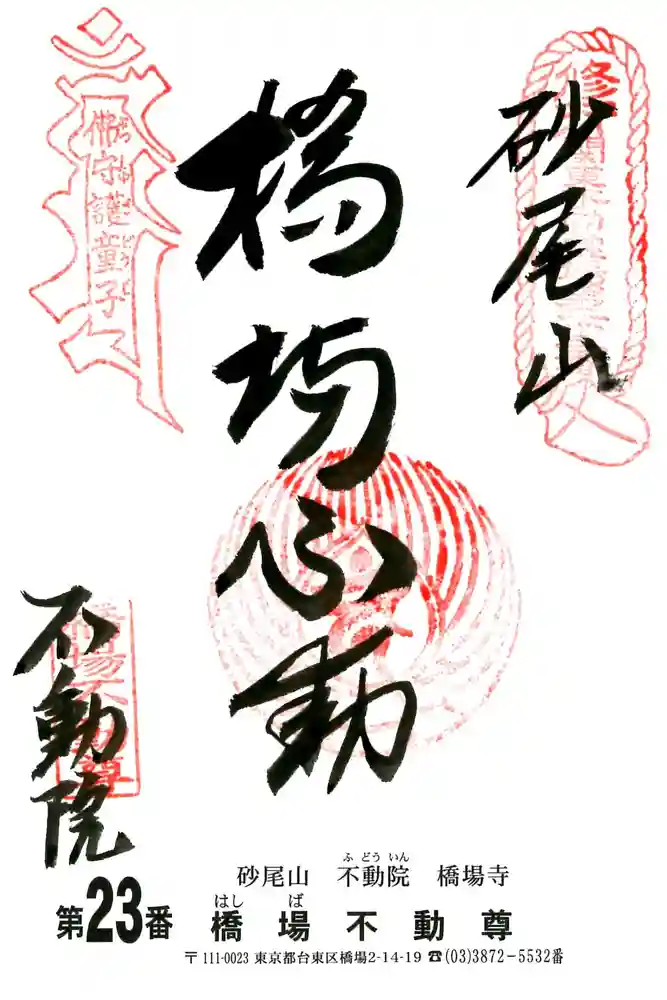 砂尾山
橋場不動
不動院
佛守護童子
橋場不動尊
砂尾山 不動院 橋場寺
ふどういん
第23番 橋場不動尊
はしば
〒111-0023 東京都台東区橋場2-14-19 ☎(03)3872-5532番